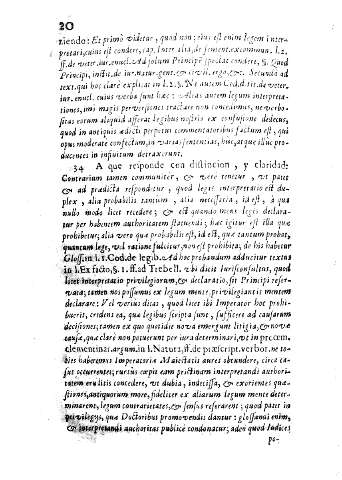 20
ziendo: Et primo videtur, quod non: eius est enim legem inter-
pretari, cuius est condere, cap. Inter alia, de sentent. excommun. l. 2.
ff. de veter. iur. enucl. Ad solum Principem spectat condere, §. Quod
Principi, instit. de iur. natur. gent. & civil. ergo, &c. Secundo ad
text. qui hoc clare explicat in l. 2. §. Ne autem Cod. d. tit. de veter.
iur. enucl. cuius verba sunt hæc: Alias autem legum interpreta-
tiones, imò magis perversiones tractare non concedimus, ne verbo-
sitas eorum aliquid afferat legibus nostris ex confusione dedecus,
quod in antiquis edicti perpetui commentatoribus factum est, qui
opus moderate confectum, in varias sententias, huc, atque illuc pro-
ducentes in infinitum detraxerunt.
34 A que responde con distincion, y claridad:
Contrarium tamen communiter, & verè tenetur, ut patet
& ad prædicta respondetur, quod legis interpretatio est du-
plex, alia probabilis tantum, alia necessaria, id est, à qua
nullo modo licet recedere; & est quando mens legis declara-
tur per habentem authoritatem statuendi; hæc igitur est illa quæ
prohibetur; alia vero quæ probabilis est, id est, quæ tantum probat,
quantum lege, vel ratione fulcitur, non est prohibita, de his habetur
Gloss. in l. 1. Cod. de legib. Ad hoc probandum adducitur textus
in l. Ex facto, §. 1. ff. ad Trebell. ubi dicit Iurisconsultus, quod
licet interpretatio privilegiorum, & declaratio, sit Principi reser-
vata; tamen nos possumus ex legum mente privilegiantis mentem
declarare: Vel verius dicas, quod licet ibi Imperator hoc prohi-
buerit, credens ea, quæ legibus scripta sunt, sufficere ad causarum
decisiones; tamen ex quo quotidie nova emergunt litigia, & novæ
causæ, quæ clarè non potuerunt per iura determinari, ut in prœm.
clementinar. argum. in l. Natura, ff. de præscript. verbor. ne to-
ties habeamus Imperatoriæ Maiestatis aures obtundere, circa ca-
sus occurentes; rursus cupit eam pristinam interpretandi authori-
tatem eruditis concedere, ut dubia, indecissa, & exorientes quæs-
tiones, antiquorum more, fideliter ex aliarum legum mente deter-
minarent, legum contrarietates, & sensus reserarent; quod patet in
privilegijs, quæ Doctoribus promovendis dantur: glossandi enim,
& interpretandi authoritas publicè condonatur; adeo quod Iudices
pe-